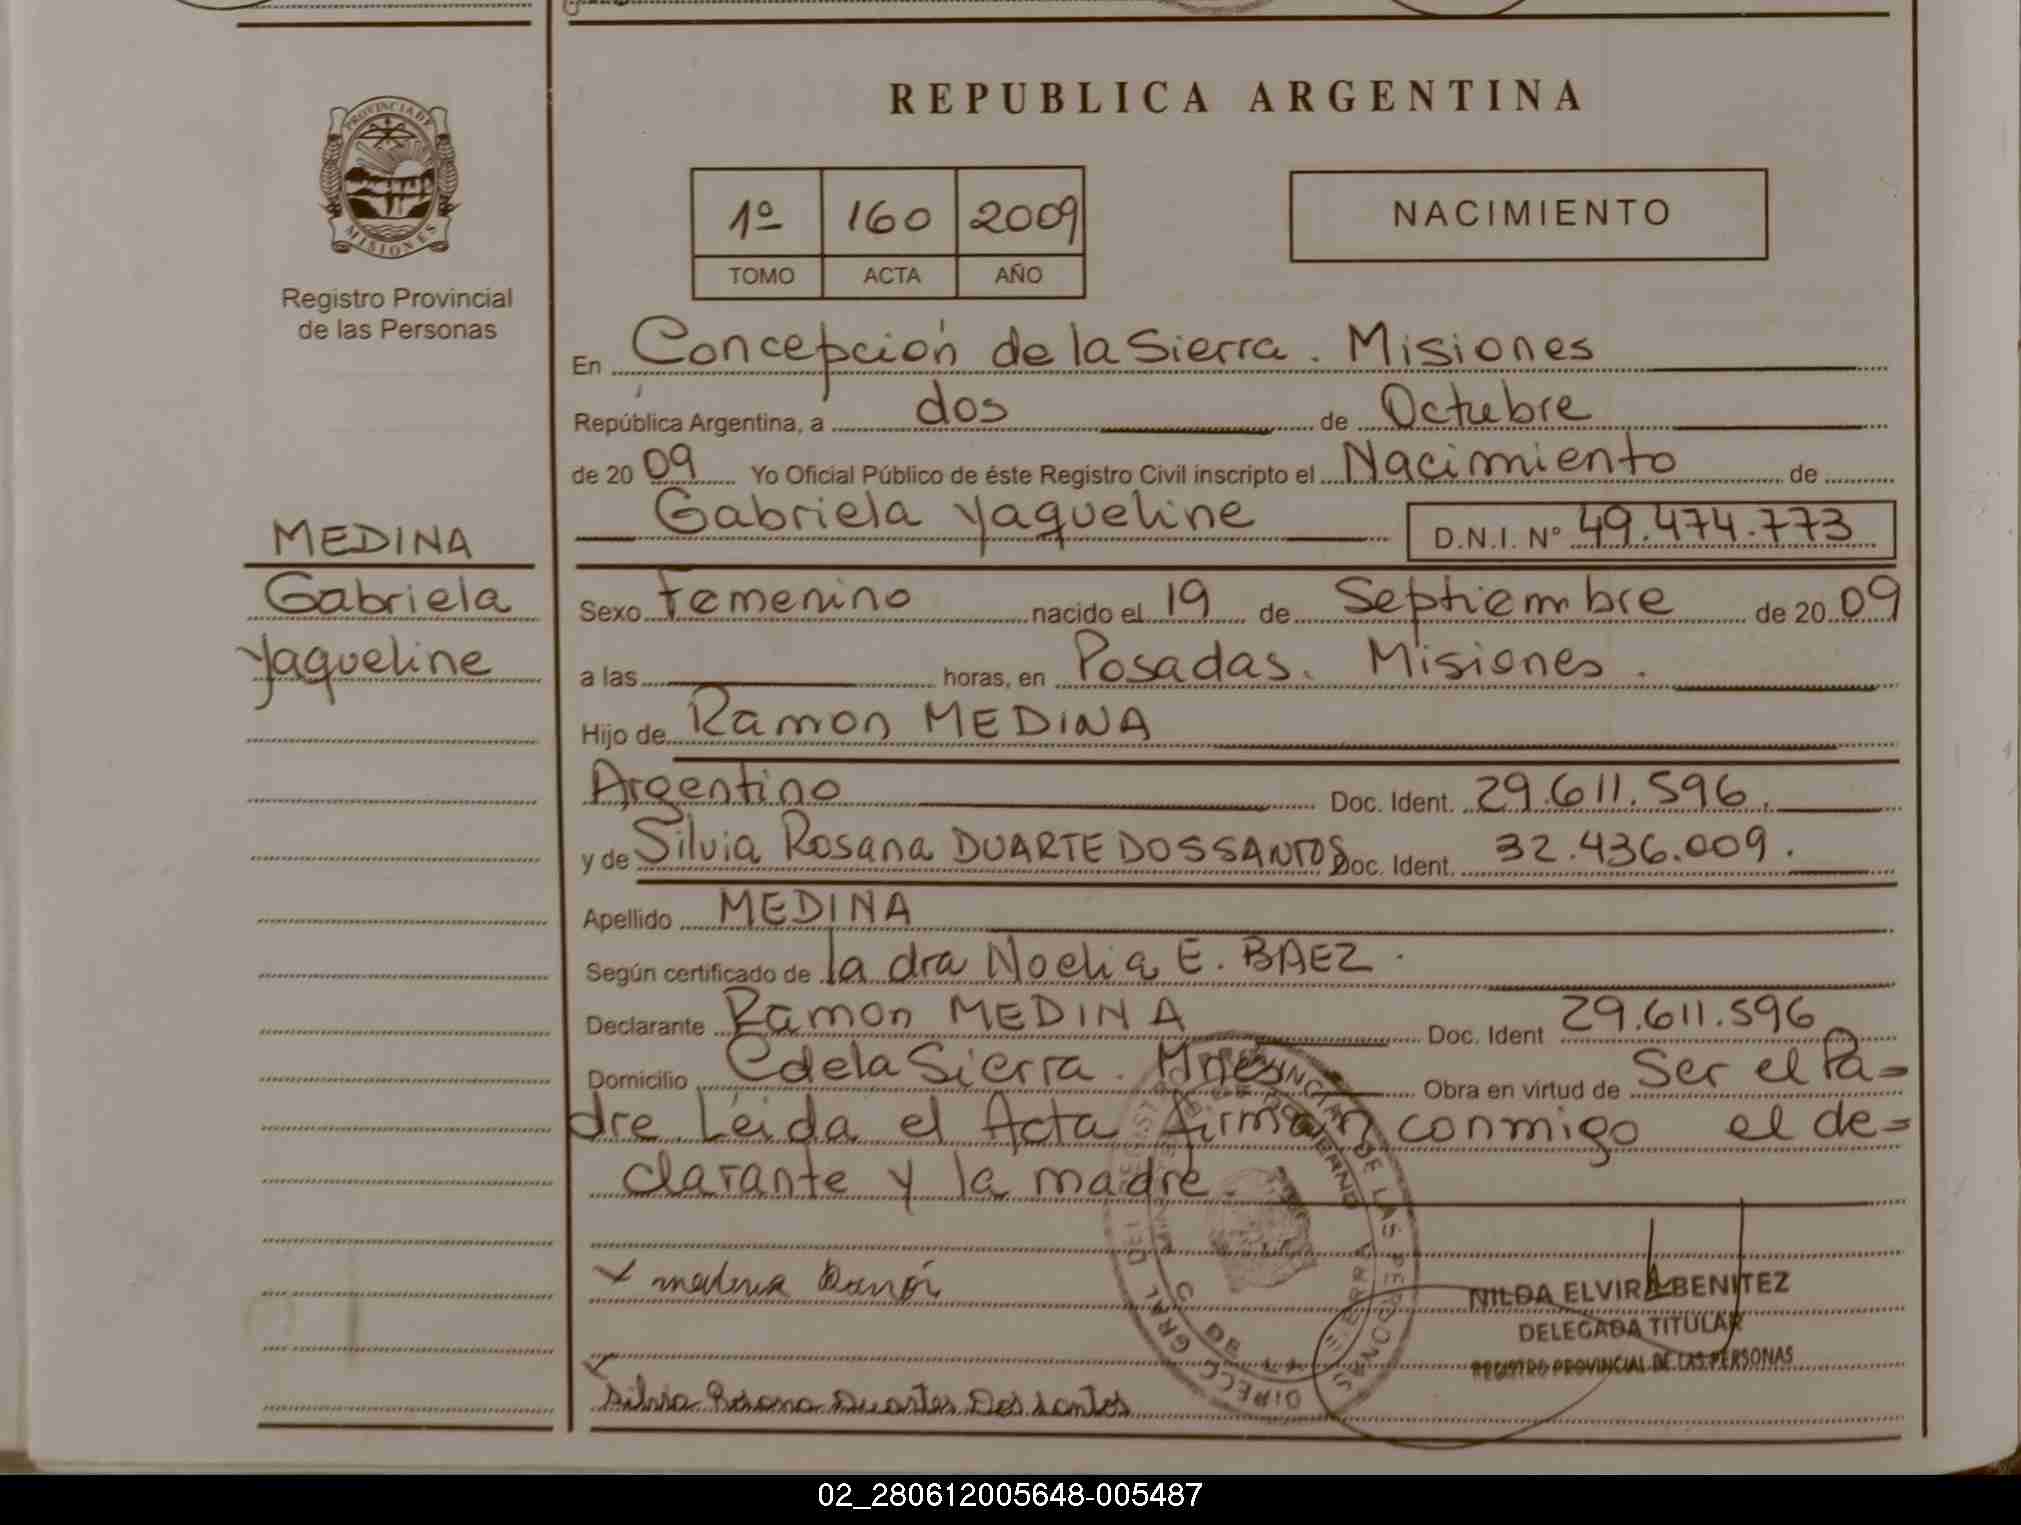 REPUBLICA ARGENTINA
PROVINCIA DE
MISIONES
Registro Provincial
de las Personas
1º 160 2009
TOMO ACTA AÑO
NACIMIENTO
En Concepción de la Sierra. Misiones
República Argentina, a dos de Octubre
de 2009 Yo Oficial Público de éste Registro Civil inscripto el Nacimiento de
Gabriela Yaqueline D.N.I. Nº 49.474.773
MEDINA
Gabriela
Yaqueline
Sexo Femenino nacido el 19 de Septiembre de 2009
a las horas, en Posadas. Misiones.
Hijo de Ramon MEDINA
Argentino Doc. Ident. 29.611.596.
y de Silvia Rosana DUARTE DOSSANTOS Doc. Ident. 32.436.009.
Apellido MEDINA
Según certificado de la dra Noelia E. BAEZ.
Declarante Ramon MEDINA Doc. Ident 29.611.596
Domicilio C de la Sierra. Mnes Obra en virtud de Ser el Pa=
dre. Leida el Acta firman conmigo el de=
clarante y la madre.
medina Ramón
NILDA ELVIRA BENITEZ
DELEGADA TITULAR
REGISTRO PROVINCIAL DE LAS PERSONAS
Silvia Rosana Duartes Dos santos
DIRECC GRAL DEL PROVINCIAL DE LAS PERSONAS
02_280612005648-005487